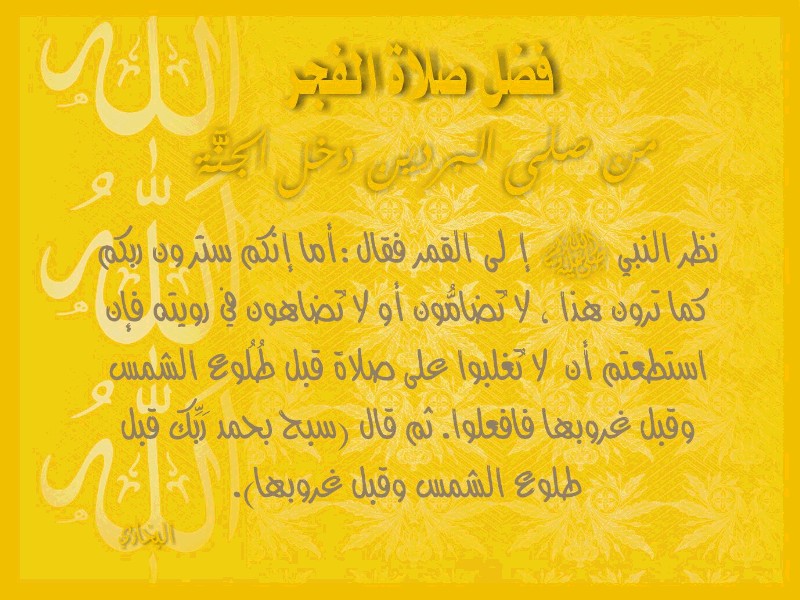 فضل صلاة الفجر
من صلى البردين دخل الجنَّة
نظر النبي ﷺ إلى القمر فقال :أما إنكم سترون ربكم
كما ترون هذا ، لا تُضامُّون أو لا تُضاهون في رويته فإن
استطعتم أن لا تُغلبوا على صلاة قبل طُلُوع الشمس
وقبل غروبها فافعلوا. ثم قال (سبح بحمد رَبِّك قبل
طلوع الشمس وقبل غروبها).
البخاري
الله
الله
الله